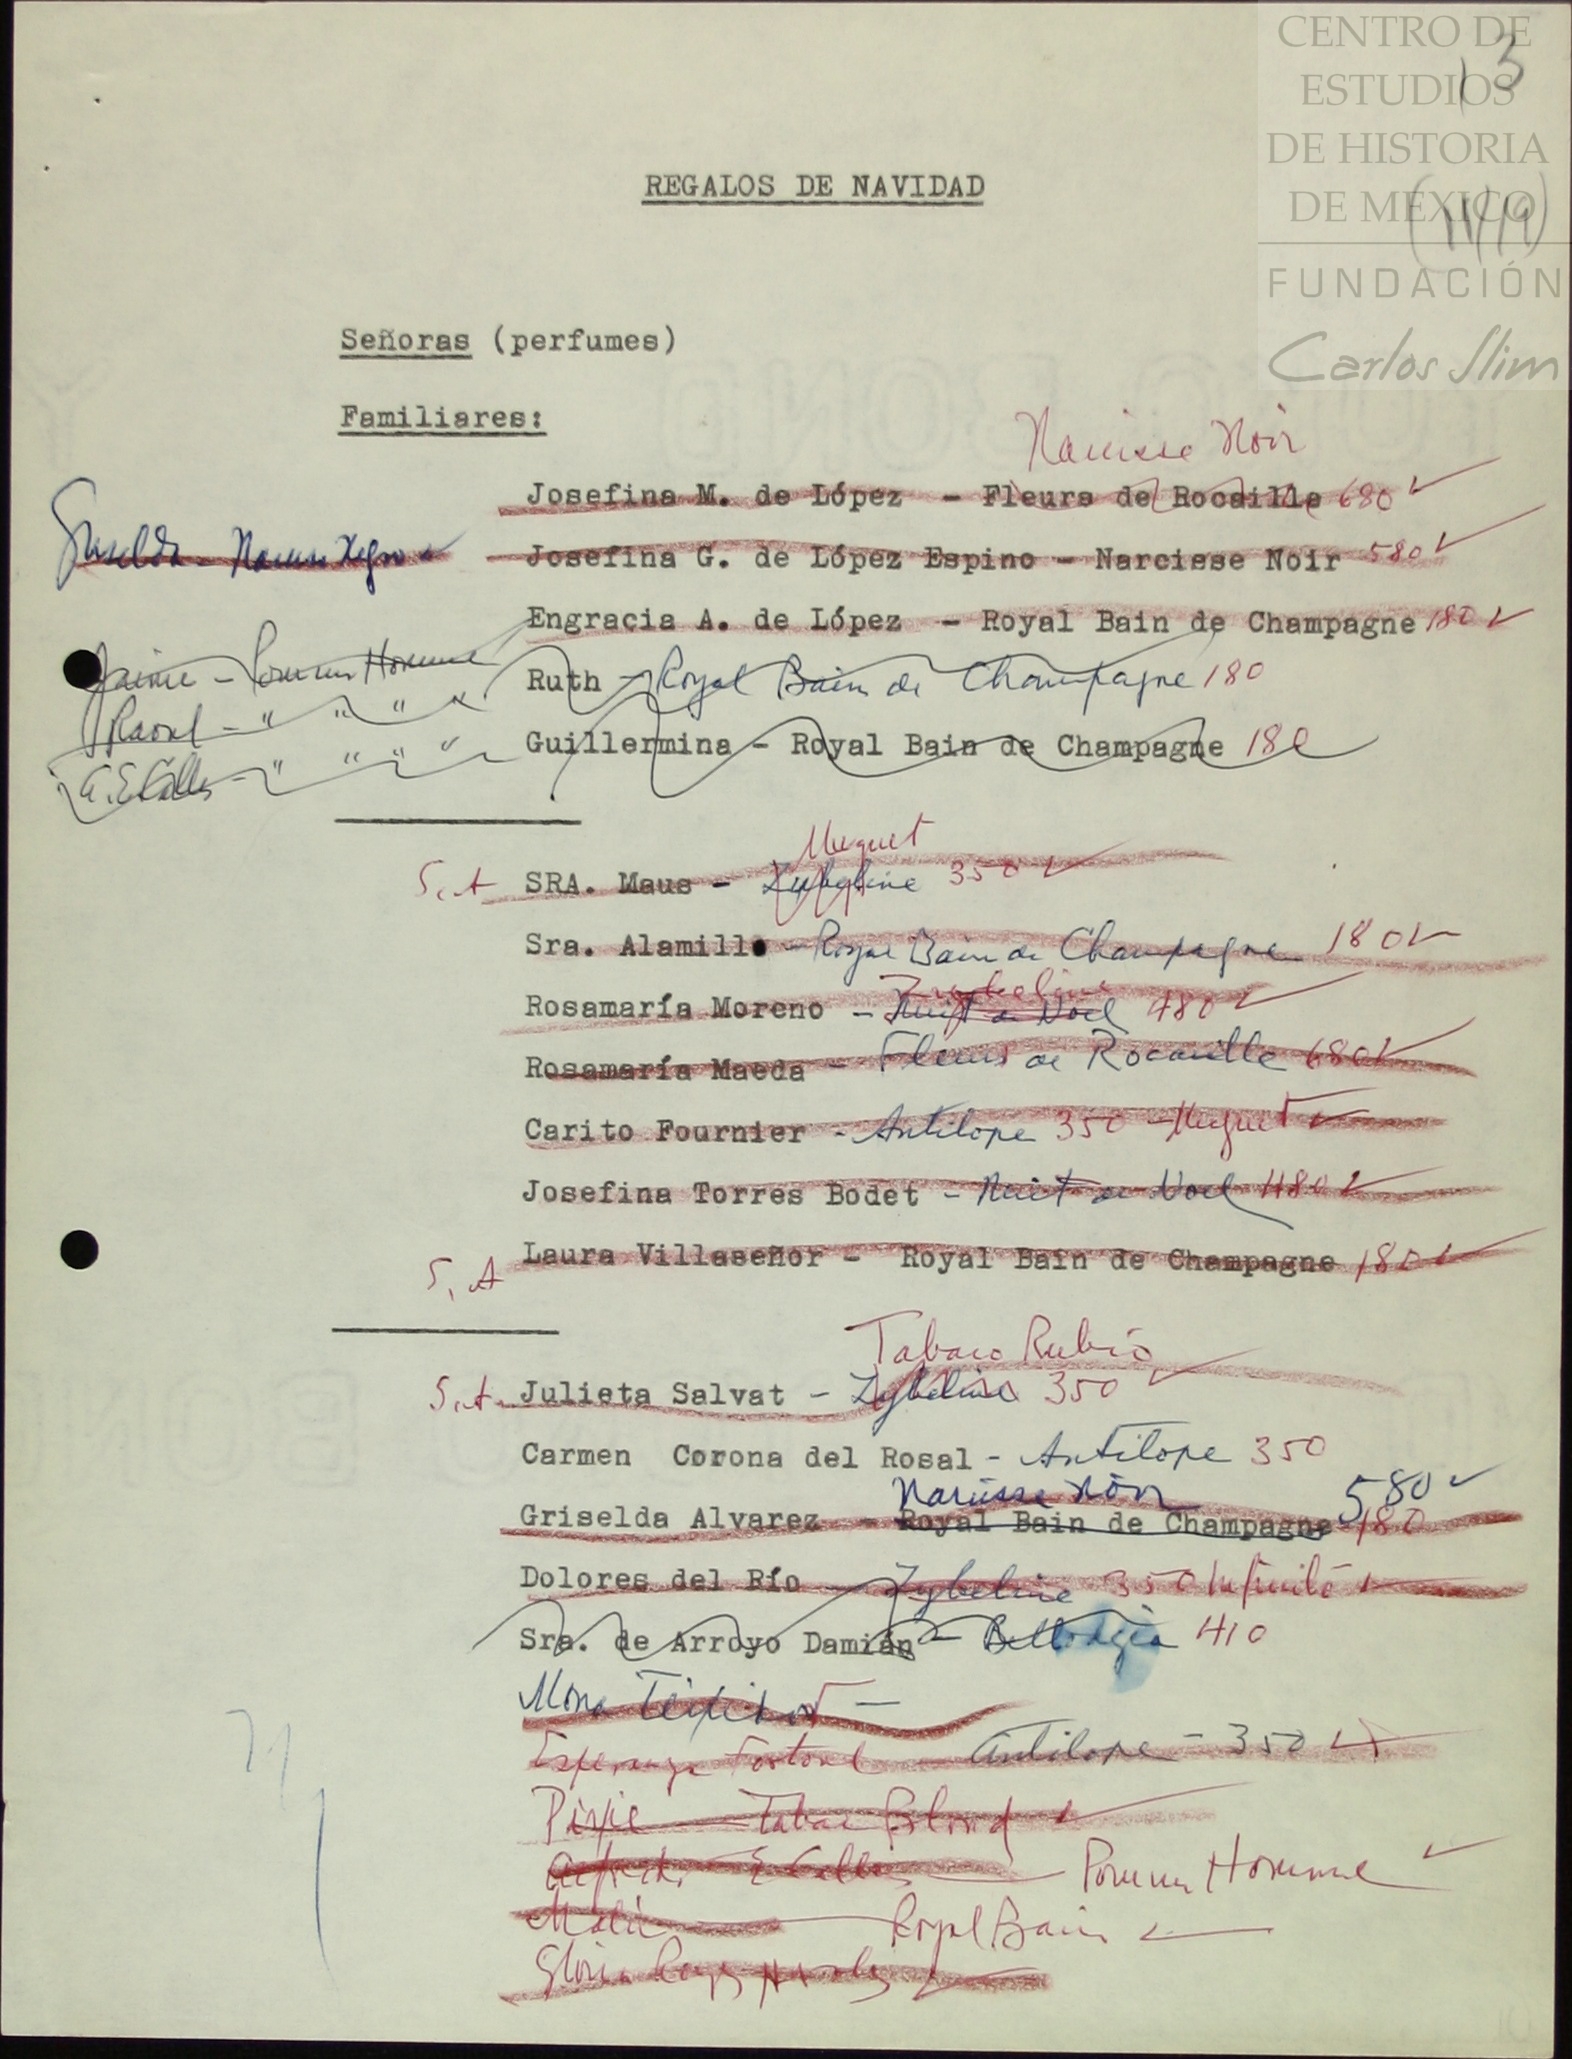 CENTRO DE
ESTUDIOS
DE HISTORIA
DE MEXICO
FUNDACIÓN
Carlos Slim
13
REGALOS DE NAVIDAD
Señoras (perfumes)
Familiares:
Narcisse Noir
Josefina M. de López - Fleurs de Rocaille 680
Griselda - Narciso Negro
Josefina G. de López Espino - Narcisse Noir 580
Engracia A. de López - Royal Bain de Champagne 180
Jaime - Pour un Homme
Ruth - Royal Bain de Champagne 180
Raoul - " " " "
Guillermina - Royal Bain de Champagne 180
A. E. Calles - " " " "
Muguet
S.A SRA. Maus - Zybeline 350
Sra. Alamillo - Royal Bain de Champagne 180
Zybeline
Rosamaría Moreno - Nuit de Noel 480
Rosamaría Maeda - Fleurs de Rocaille 680
Carito Fournier - Antilope 350 - Muguet
Josefina Torres Bodet - Nuit de Noel 480
S. A Laura Villaseñor - Royal Bain de Champagne 180
Tabaco Rubio
S.A. Julieta Salvat - Zybeline 350
Carmen Corona del Rosal - Antilope 350
Narcisse Noir 580
Griselda Alvarez - Royal Bain de Champagne 180
Dolores del Río - Zybeline 350 Infinito
Sra. de Arroyo Damián - Bellodgia 410
Mona
Esperanza - Antilope - 350
Pixie - Tabac Blond
Alfredo E Calles - Pour un Homme
Royal Bain
Gloria